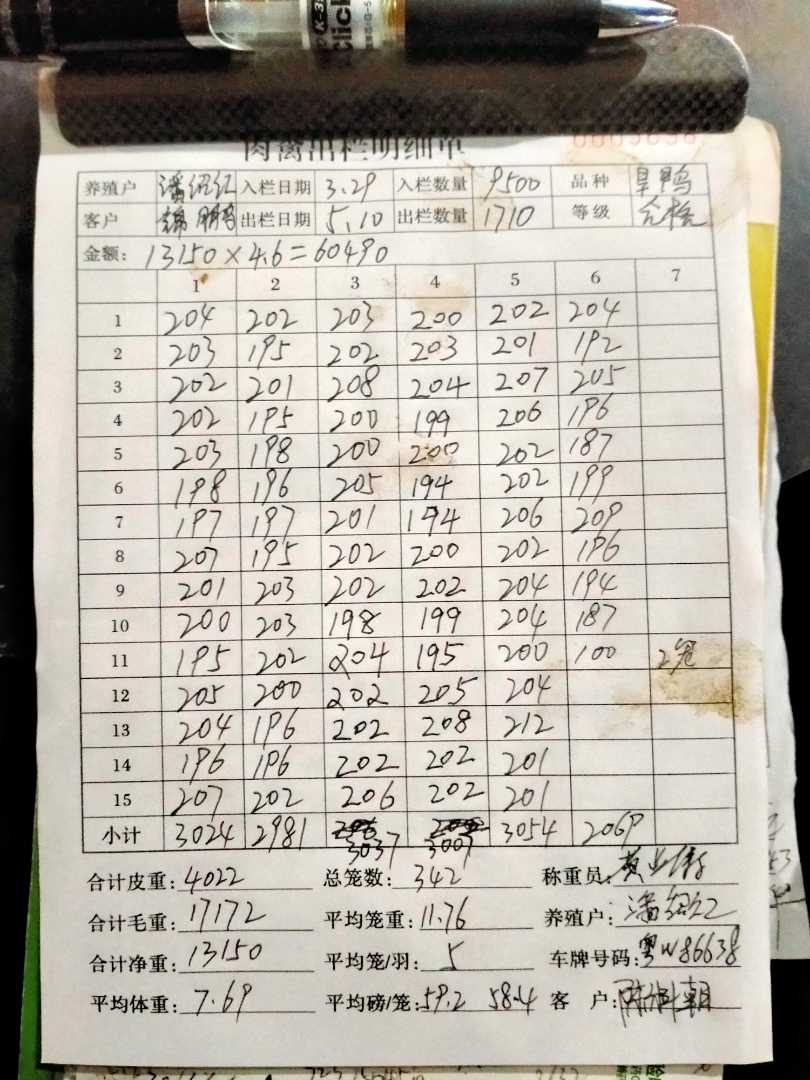 Click
肉禽出栏明细单
养殖户 潘绍红 入栏日期 3.29 入栏数量 9500 品种 旱鸭
客户 出栏日期 5.10 出栏数量 1710 等级 合格
金额: 13150×4.6=60490
1 2 3 4 5 6 7
1 204 202 203 200 202 204
2 203 195 202 203 201 192
3 202 201 208 204 207 205
4 202 195 200 199 206 196
5 203 198 200 200 202 187
6 198 196 205 194 202 199
7 197 197 201 194 206 209
8 207 195 202 200 202 196
9 201 203 202 202 204 194
10 200 203 198 199 204 187
11 195 202 204 195 200 100 2笼
12 205 200 202 205 204
13 204 196 202 208 212
14 196 196 202 202 201
15 207 202 206 202 201
小计 3024 2981 3037 3007 3054 2069
合计皮重: 4022 总笼数: 342 称重员:
合计毛重: 17172 平均笼重: 11.76 养殖户: 潘绍红
合计净重: 13150 平均笼/羽: 5 车牌号码: 粤W86638
平均体重: 7.69 平均磅/笼: 59.2 58.4 客 户: